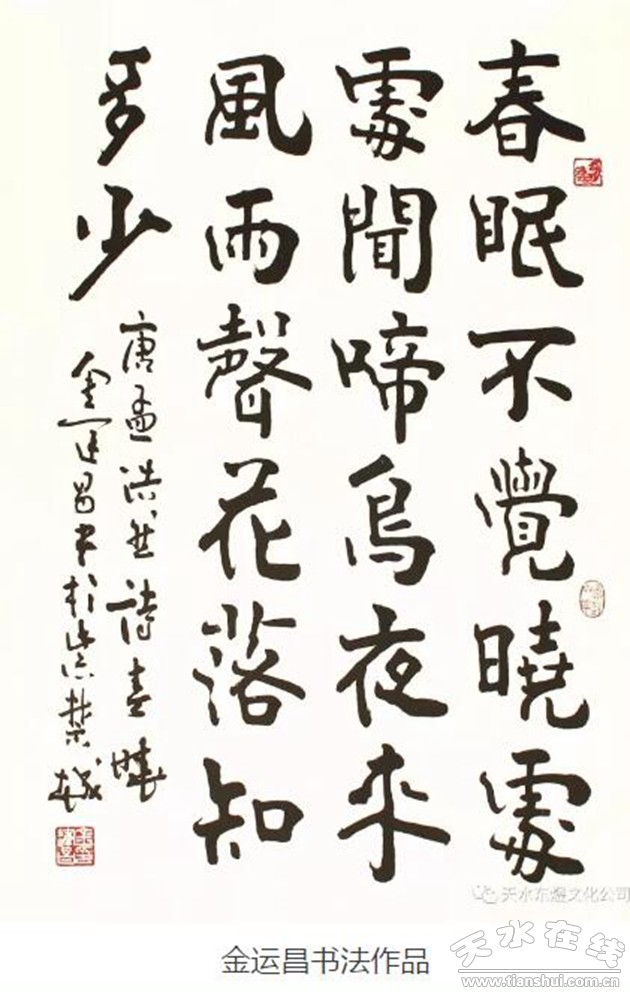 春眠不覺曉處
處聞啼鳥夜來
風雨聲花落知
多少
唐孟浩然詩春曉
金運昌書於紫禁城
天水东煜文化公司
金运昌书法作品
天水在线
www.tianshui.com.cn